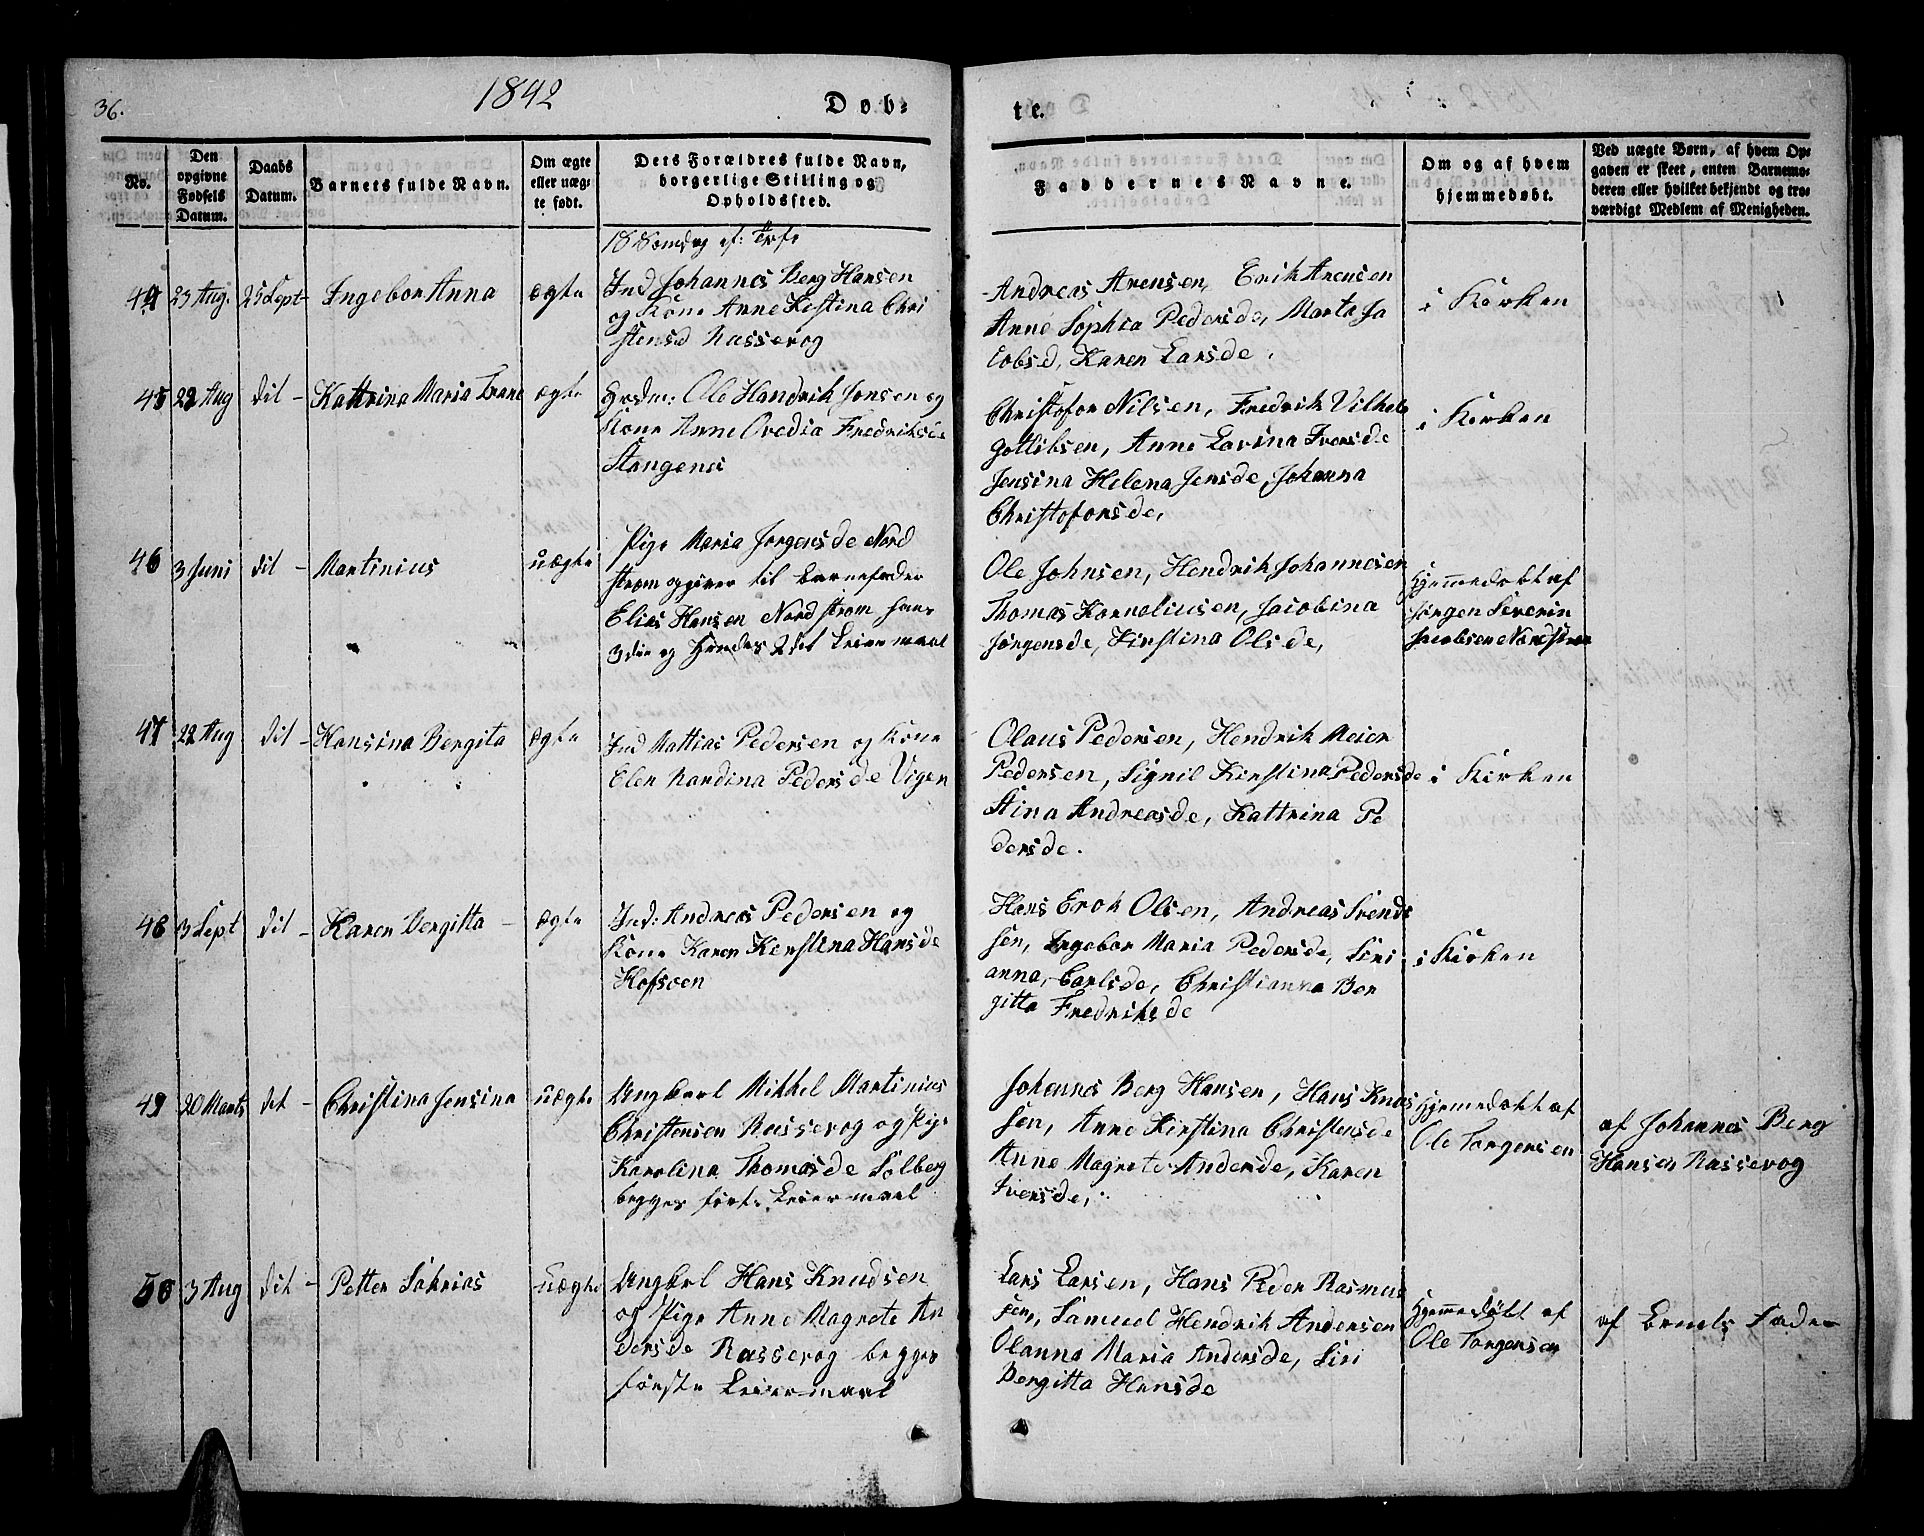 36.
1842
Dob-
te.
No.
Den
opgivne
Fødsels
Datum.
Daabs
Datum.
Barnets fulde Navn.
Om ægte
eller uæg-
te født.
Dets Forældres fulde Navn,
borgerlige Stilling og
Opholdssted.
Faddernes Navne.
Om og af hvem
hjemmedøbt.
Ved uægte Børn, af hvem Op-
gaven er skeet, enten Barnemo-
deren eller hvilket bekjendt og tro-
værdigt Medlem af Menigheden.
18 Søndag ef: Tref.
44 23 Aug. 25 Sept- Ingebor Anna ægte
Ind Johannes Berg Hansen
og Kone Anne Kirstina Chri
stensd Rassevog
Andreas Arensen, Erik Arensen
Anne Sophia Pedersde, Marta Ja
cobsd, Karen Larsde.
i Kirken
45 22 Aug dit - Kattrina Maria Trane ægte
Hrdm: Ole Hendrik Jensen og
Kone Anne Ovedia Fredriksde
Stangenes
Christofor Nilsen, Fredrik Vilhelm
Gottlibsen, Anne Lavina Iversde
Jensina Helena Jensde, Johanna
Christoforsde,
i Kirken
46 3 Juni dit - Martinius uægte
Pige Maria Jørgensde Nord
strøm opgiver til Barnefader
Elias Hansen Nordstrøm hans
3die og Hendes 2det Leiermaal
Ole Johnsen, Hendrik Johannesen
Thomas Korneliusen, Jacobina
Jørgensde, Kirstina Olsde,
Hjemmedøbt af
Jørgen Severin
Jacobsen Nordstrøm
47 22 Aug dit - Hansina Bergita ægte
Ind Mattias Pedersen og Kone
Elen Nardina Pedersde Vigen
Olaus Pedersen, Hendrik Meier
Pedersen, Signil Kirstina Pedersde
Stina Andreasde, Kattrina Pe
dersde.
i Kirken
48 3 Sept dit - Karen Bergitta - ægte
Ind: Andreas Pedersen og
Kone Karen Kirstina Hansde
Hofsøen
Hans Erok Olsen, Andreas Svend
sen, Ingebor Maria Pedersde, Seri
anna, Carlsde, Christianna Ber
gitta Fredriksde
i Kirken
49 20 Marts det - Christina Jensina uægte
Ungkarl Mikkel Martinius
Christensen Rassevog og Pige
Karolina Thomasde Solberg
begges første Leiermaal
Johannes Berg Hansen, Hans Knud
sen, Anne Kirstina Christensde
Anne Magrete Andersde, Karen
Iversde,
Hjemmedøbt af
Ole Torgersen
af Johannes Berg
Hansen Rassevog
50 3 Aug dit - Petter Sakrias uægte
Ungkarl Hans Knudsen
og Pige Anne Magrete An
dersde Rassevog begges
første Leiermaal
Lars Larsen, Hans Peder Rasmus
sen, Samuel Hendrik Andersen
Olanna Maria Andersde, Siri
Bergitta Hansde
Hjemmedøbt af
Ole Torgersen
af Barnets Fader